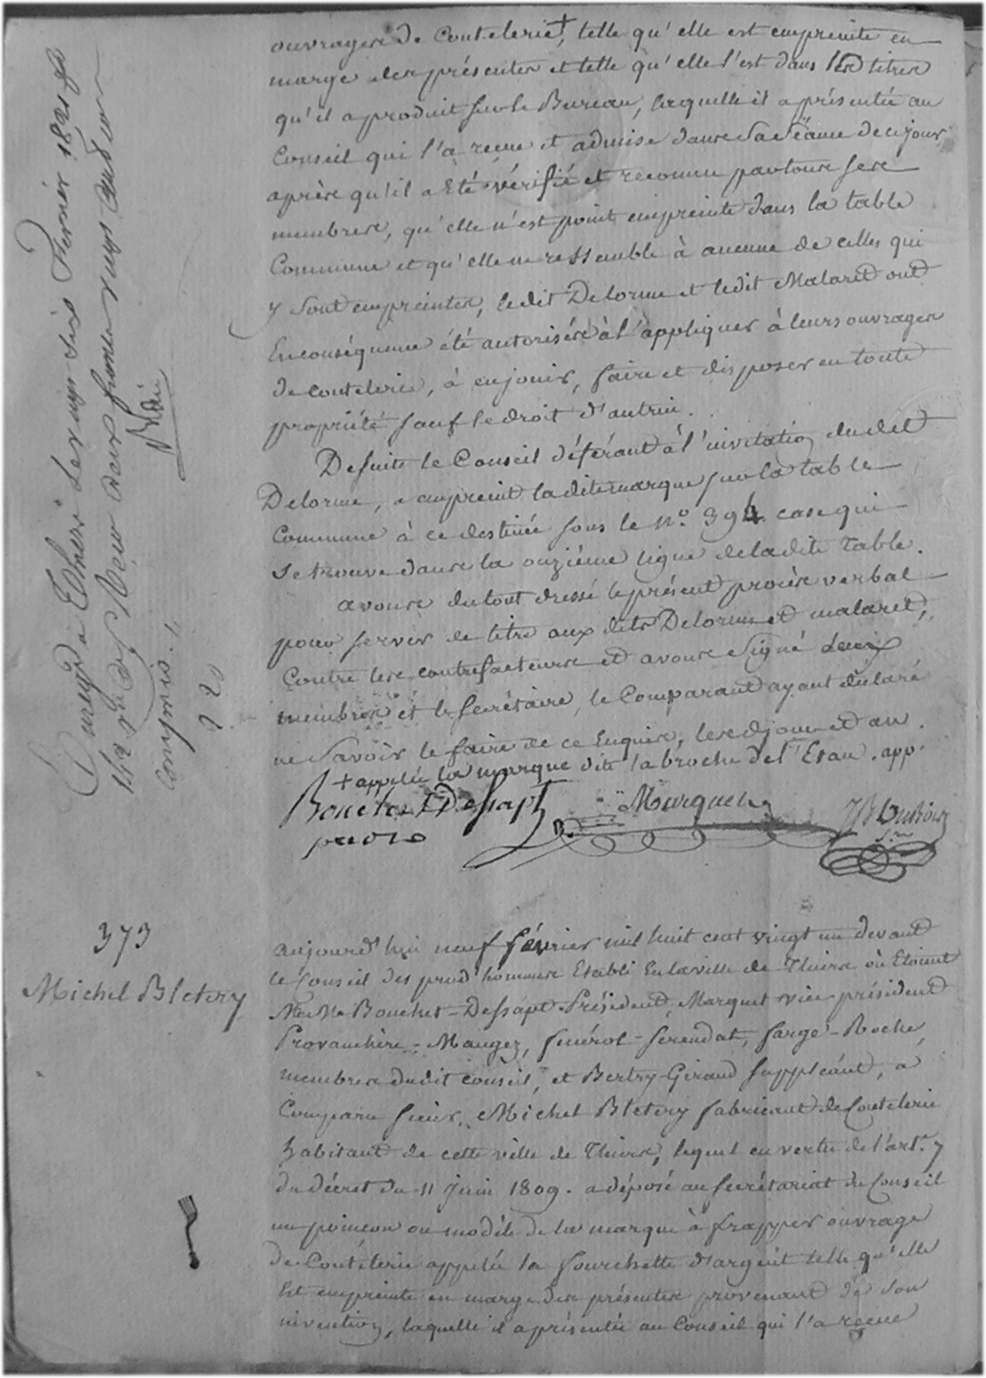 ouvrages de Coutelerie +, telle qu'elle est empreinte en
marge des présentes et telle qu'elle l'est dans les titres
qu'il a produit sur le Bureau, laquelle il a présentée au
Conseil qui l'a reçue et admise dans sa Séance de ce jour,
après qu'il a Eté vérifié et reconnu par tous ses
membres, qu'elle n'est point empreinte dans la table
Commune et qu'elle ne ressemble à aucune de celles qui
y sont empreintes, ledit Delorme et ledit Malaret ont
En conséquence été autorisés à l'appliquer à leurs ouvrages
de coutelerie, à en jouir, faire et disposer en toute
propriété sauf le droit d'autrui.
De suite le Conseil déférant à l'invitation dudit
Delorme, a empreint ladite marque sur la table
Commune à ce destinée sous le N.o 394 case qui
se trouve dans la onzième ligne de ladite table.
avons du tout dressé le présent procès verbal
pour servir de titre aux dits Delorme et malaret,
Contre les contrefacteurs et avons Signé deux
membres et le secrétaire, le Comparant ayant déclaré
ne Savoir le faire de ce Enquis, lesdjour et an.
+ appelée la marque dite la broche de l'Ecau. app.
Bouchet Dessapt
Marquet
Enregistré à Thiers le vingt six Février 1821 fo
Reçu deux francs vingt centimes
compris
2 20
373
Michel Bletery
aujourd'hui neuf février mil huit cent vingt un devant
le Conseil des prud'hommes Etabli En la ville de Thiers où Etoient
MM.rs Bouchet-Dessapt Président, Marquet vice-président
Provenchère-Mauger, Guérot-Serendat, Sarge-Roche
membres dudit conseil, et Bertry-Giraud suppléant, a
Comparu sieur Michel Bletery fabricant de Coutelerie
habitant de cette ville de Thiers, lequel en vertu de l'art. 7
du Décret du 11 Juin 1809. a déposé au secrétariat du Conseil
un poinçon ou modèle de la marque à frapper ouvrage
de Coutelerie appelée la fourchette d'argent telle qu'elle
Est empreinte en marge des présentes provenant de son
invention, laquelle il a présentée au Conseil qui l'a reçue